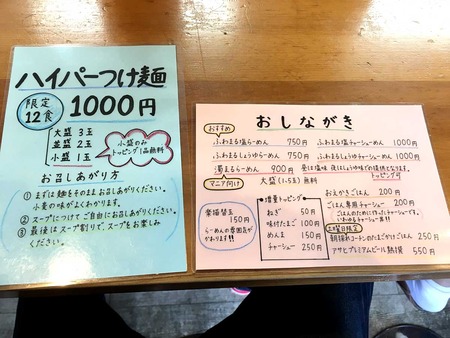 ハイパーつけ麺
限定
12食
1000円
大盛 3玉
並盛 2玉
小盛 1玉
小盛のみ
トッピング1品無料
お召しあがり方
① まずは麺をそのままお召しあがりください。
小麦の味がよくわかります。
② スープにつけてご自由にお召しあがりください。
③ 最後はスープ割りで、スープをお楽しみ
ください。
おしながき
おすすめ
ふわまる塩らーめん 750円
ふわまるしょうゆらーめん 750円
濁まるらーめん 900円
マニア向け
大盛(1.5玉)無料
ふわまる塩チャーシューめん 1000円
ふわまるしょうゆチャーシューめん 1000円
トッピング可
替玉
150円
らーめんの雰囲気が
かわります!!
増量トッピング
ねぎ 50円
味付たまご 100円
めんま 150円
チャーシュー 250円
おえかきごはん 200円
ごはん専用チャーシュー 200円
ごはんのために作ったチャーシューです。
いわゆるチャーシュー丼!!
土曜日限定
朝採れコーチンのたまごかけごはん 350円
アサヒプレミアムビール熟撰 550円